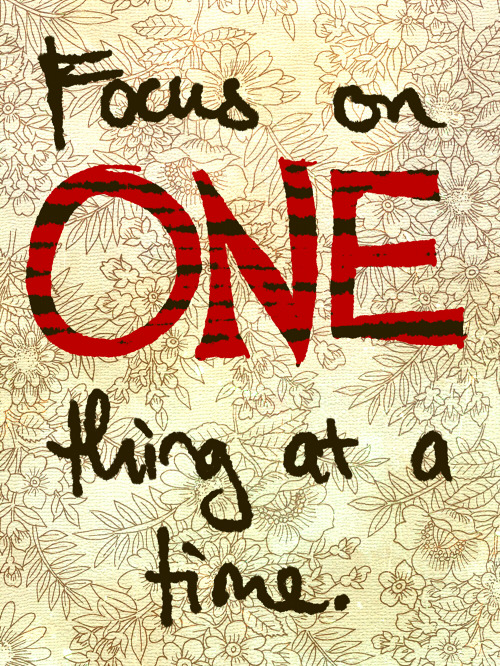 Focus on
ONE
thing at a
time.